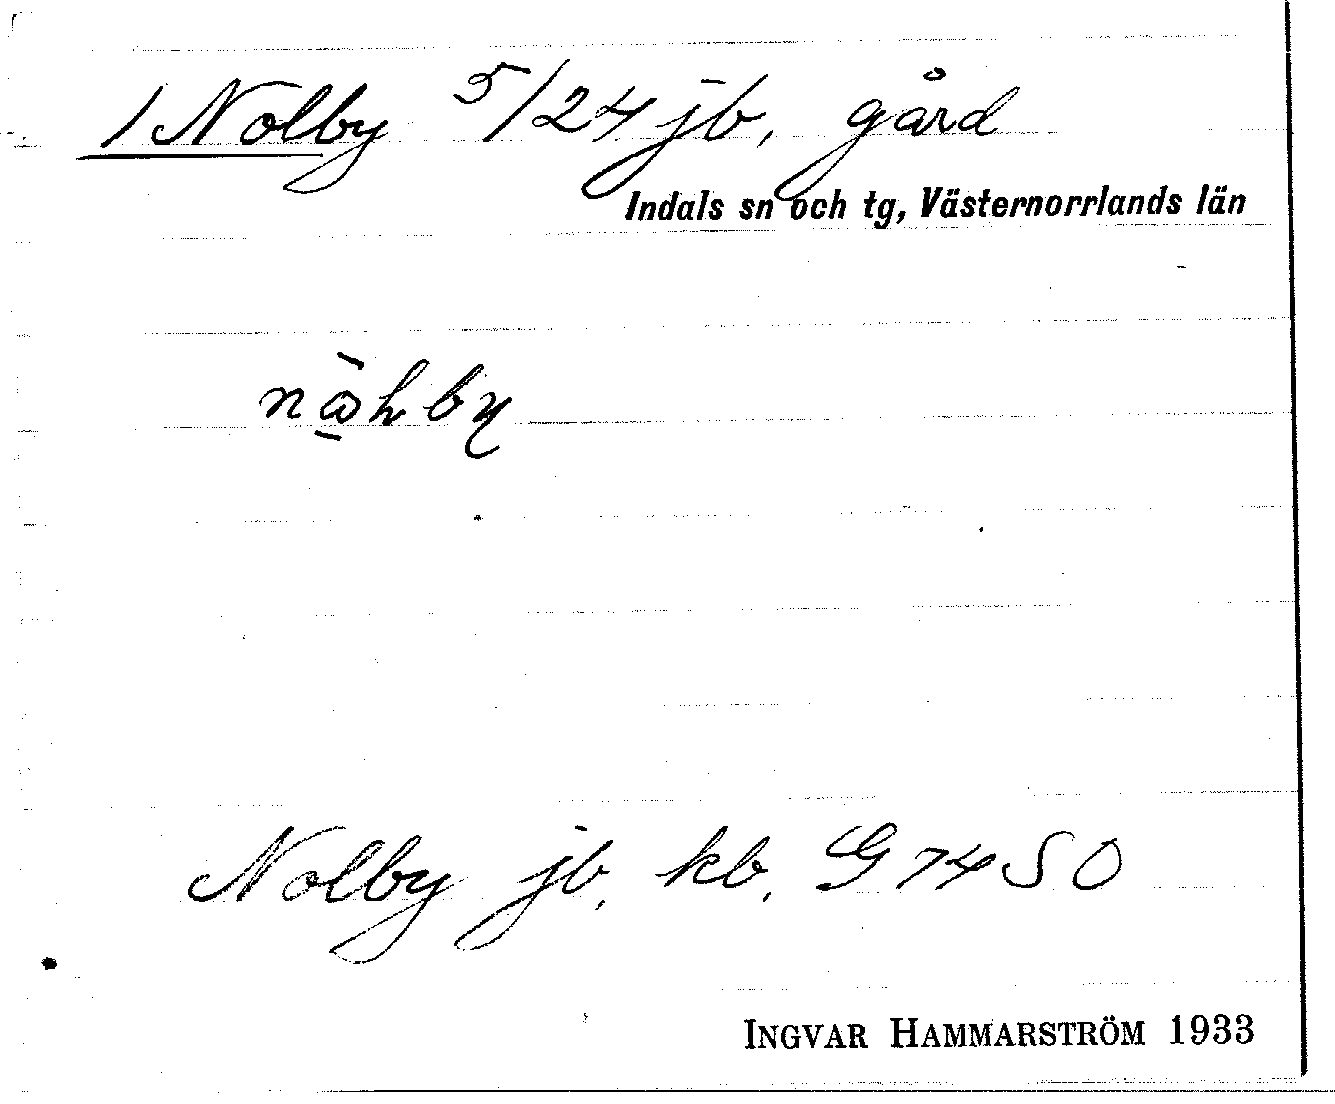 1 Nolby 5/24 jb, gård
Indals sn och tg, Västernorrlands län
Nolby jb, kb, G 74 SO
INGVAR HAMMARSTRÖM 1933